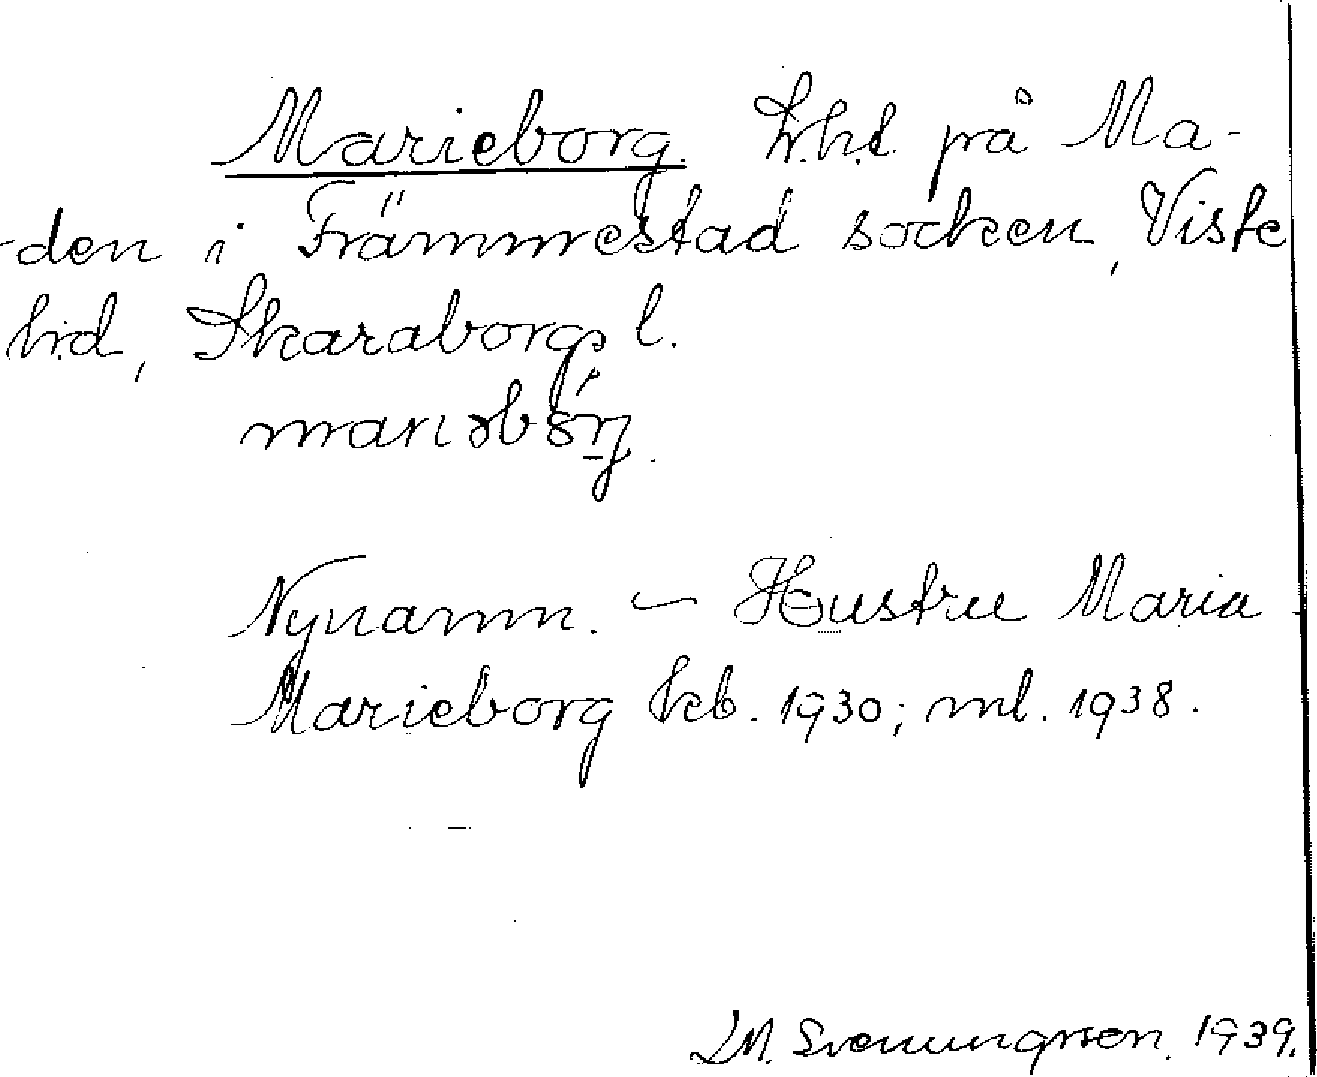 Marieborg. Lht på Ma-
-den i Främmestad socken, Viste
hd, Skaraborgs l.
Nynamn. – Hustru Maria
Marieborg kb. 1930; ml. 1938.
Svenungsson. 1939.